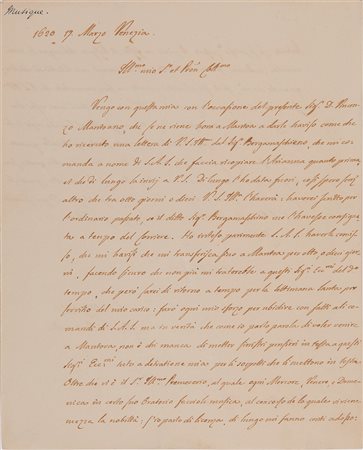 Musique.
1620 17. Marzo Venezia.
Ill.mo mio S.r et Pron Coll.mo
Vengo con questa mia con l'occasione del presente Sig.r D. Vincen
zo Mantoano, che se ne viene hora a Mantoa a darle haviso come
ho ricevuto una lettera di V. S. Ill. del Sig.r Bergamaschino, che mi co-
manda a nome di S. A. S. che faccia ricopiare l'Arianna quanto prima
et che di lungo la invij a V. S. Di lungo l'ho data fuori,
altro che tra otto giorni o dieci V. S. Ill. l'haverà; haverei
l'ordinario passato, se il ditto Sig.r Bergamaschino
a tempo del corriere. Ho inteso parimente S. A. S. haverle comis
so, che mi havisi che mi transferisca sino a Mantoa per otto, o dieci gior
ni, facendo sicuro che non più mi tratterebe a questi Sig.ri Ecc.mi del
tempo, che però sarei di ritorno a tempo per la settimana santa per
servitio del mio carico: farò ogni mio sforzo per ubidire con fatti ali co-
mandi di S. A. S. ma in verità che come io porto parola di voler venire
a Mantoa, non è chi manca di metter sinistri pensieri in testa a questi
Sig.ri Ecc.mi tutto a detratione mia per li sospetti che li mettono in testa
Oltre che vi è il S.r Ill.mo Primicerio, al quale ogni Mercore, Venere, e Dome-
nica in certo suo Oratorio faccioli musica, al concorso de la quale vi viene
mezza la nobiltà; s'io parlo di licenza, di lungo mi fanno